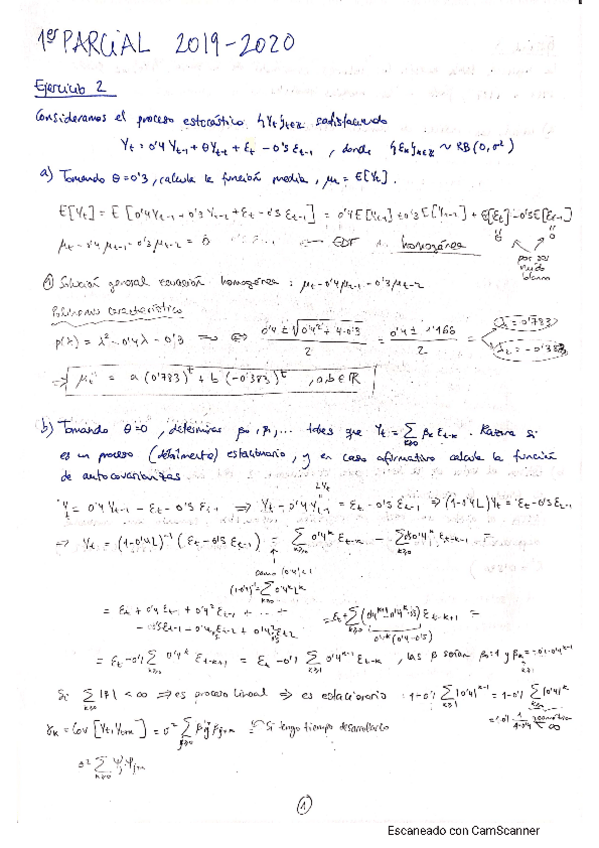 1er PARCIAL 2019-2020
Ejercicio 2
Consideramos el proceso estocástico {Yt}t∈Z satisfaciendo
Yt = 0'4 Yt-1 + θYt-2 + εt - 0'5 εt-1 , donde {εn}n∈Z ~ RB(0,σ²)
a) Tomando θ=0'3, calcula la función media, μt = E[Yt].
E[Yt] = E[0'4Yt-1 + 0'3 Yt-2 + εt - 0'5 εt-1] = 0'4E[Yt-1] + 0'3 E[Yt-2] + E[εt] - 0'5E[εt-1]
μt - 0'4μt-1 - 0'3μt-2 = 0 ← EDF homogénea
por ser ruido blanco
① Solución general ecuación homogénea: μt - 0'4μt-1 - 0'3μt-2
Polinomio característico
p(λ) = λ² - 0'4λ - 0'3 = 0 ⇔ (0'4 ± √(0'4² + 4·0'3))/2 = (0'4 ± 1'166)/2 = λ1 = 0'783 λ2 = -0'383
⇒ μt = a(0'783)^t + b(-0'383)^t , a,b∈R
b) Tomando θ=0, determina β0, β1, ... tales que Yt = Σk≥0 βk εt-k. Razona si
es un proceso (débilmente) estacionario, y en caso afirmativo calcula la función
de autocovarianzas
Yt = 0'4 Yt-1 - εt - 0'5 εt-1 ⇒ Yt - 0'4 Yt-1 = εt - 0'5 εt-1 ⇒ (1-0'4L)Yt = εt - 0'5εt-1
LYt
⇒ Yt = (1-0'4L)^-1 (εt - 0'5 εt-1) = Σk≥0 0'4^k εt-k - Σk≥0 0'5·0'4^k εt-k-1 =
como |0'4|<1
(1-0'4L)^-1 = Σk≥0 0'4^k L^k
= εt + 0'4 εt-1 + 0'4² εt-2 + ... +
= εt - 0'1 Σ 0'4^k εt-k-1 = εt - 0'1 Σk≥1 0'4^k-1 εt-k , las β serían β0=1 y βk = -0'1·0'4^k-1
Si Σk≥0 |β| < ∞ ⇒ es proceso lineal ⇒ es estacionario : 1-0'1 Σk≥1 |0'4|^k-1 = 1-0'1 Σ |0'4|^k
γk = Cov[Yt, Yt+k] = σ² Σj≥0 βj βj+k = "Si tengo tiempo desarrollarlo
σ² Σ ψj ψj+k
1
Escaneado con CamScanner